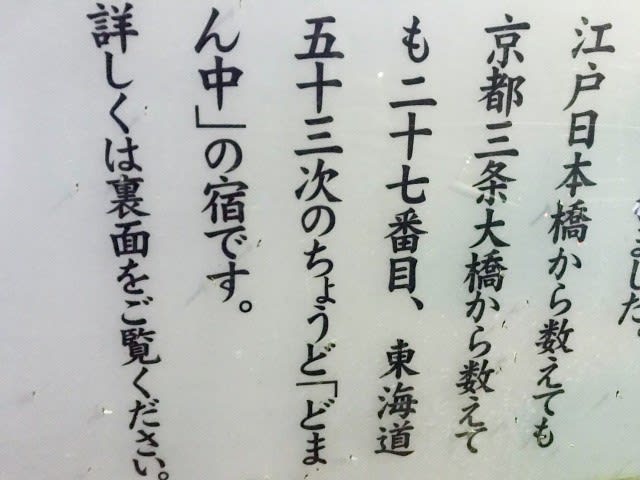 ました。
江戸日本橋から数えても
京都三条大橋から数えて
も二十七番目、東海道
五十三次のちょうど「どま
ん中」の宿です。
詳しくは裏面をご覧ください。